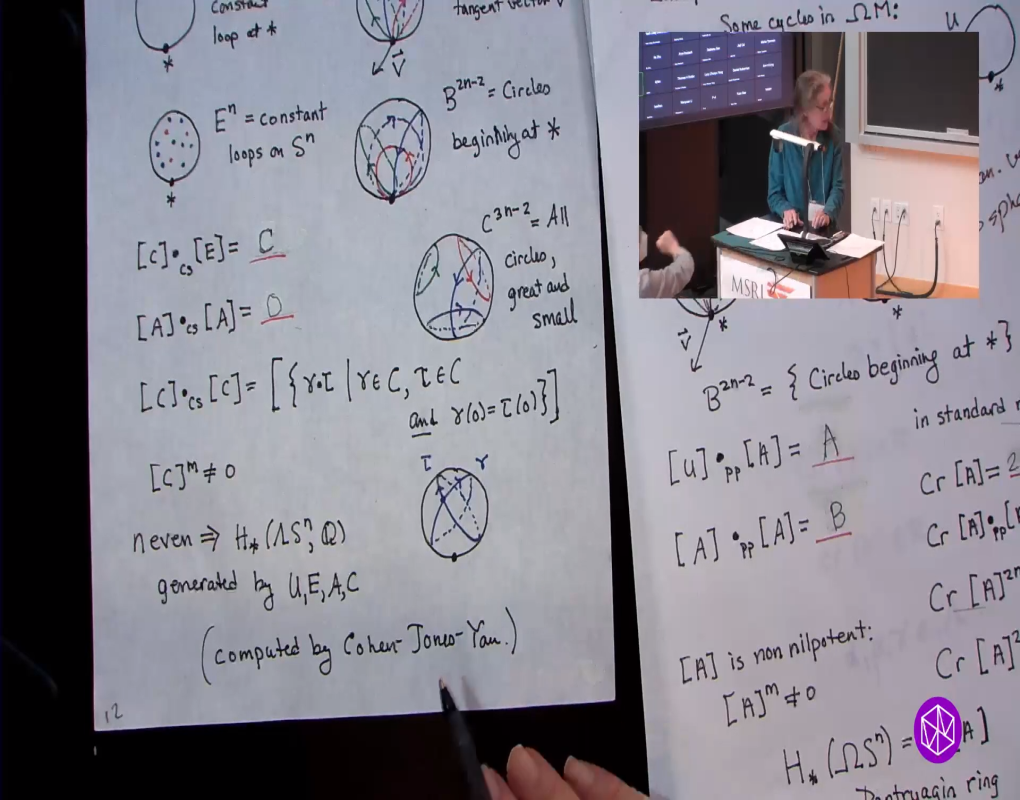 constant
loop at *
*
tangent vector V
V
Eⁿ = constant
loops on Sⁿ
*
B²ⁿ⁻² = Circles
beginning at *
C³ⁿ⁻² = All
circles,
great and
small
[C]•cs[E] = C
[A]•cs[A] = 0
[C]•cs[C] = [{γ•τ | γ∈C, τ∈C
and γ(0)=τ(0)}]
τ γ
[C]ᵐ ≠ 0
n even ⇒ H*(ΛSⁿ; Q)
generated by U, E, A, C
(computed by Cohen-Jones-Yan.)
12
Some cycles in ΩM:
U
*
MSRI
V
*
*
B²ⁿ⁻² = { Circles beginning at * }
in standard
[U]•pp[A] = A
Cr [A] = 2
[A]•pp[A] = B
Cr [A]•pp[
Cr [A]²ⁿ
[A] is non nilpotent:
Cr [A]²
[A]ᵐ ≠ 0
H*(ΩSⁿ) = A]
Pontryagin ring